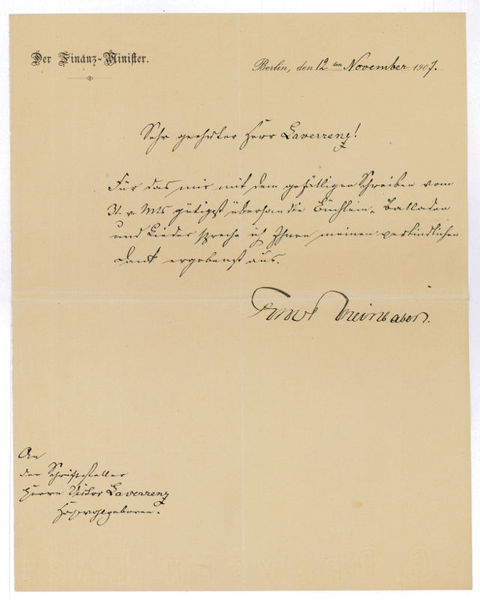 Der Finanz-Minister.
Berlin, den 12 ten November 1907.
Sehr geehrter Herr Laverrenz!
Für das mir mit dem gefälligen Schreiben vom
31. v. Mts gütigst übersandte Büchlein „Balladen
und Lieder“ spreche ich Ihnen meinen verbindlichen
Dank ergebenst aus.
Rheinbaben.
An
den Schriftsteller
Herrn Victor Laverrenz
Hochwohlgeboren.